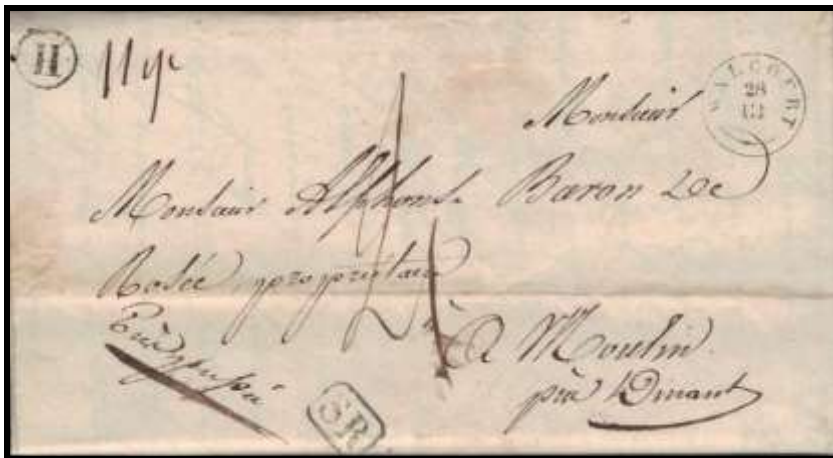 H
WALCOURT
28
III
Monsieur
Monsieur Alphonse Baron De
Rosée, propriétaire
A Moulin
près Dinant
SR